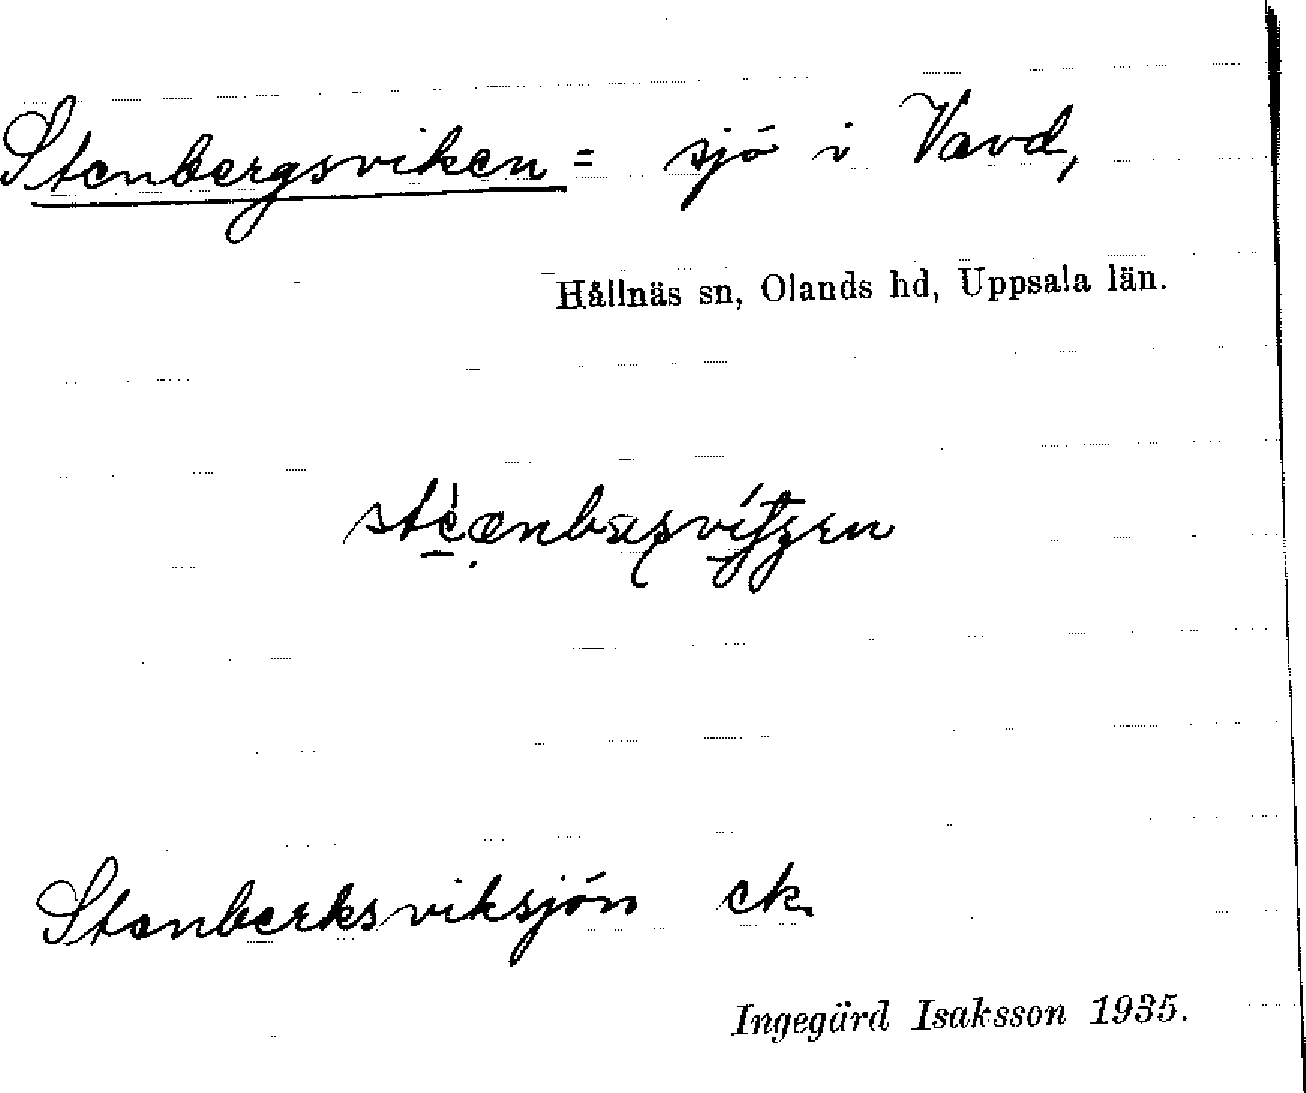 Stenbergsviken = sjö i Vavd,
Hållnäs sn, Olands hd, Uppsala län.
Stenberksviksjön ek.
Ingegärd Isaksson 1935.